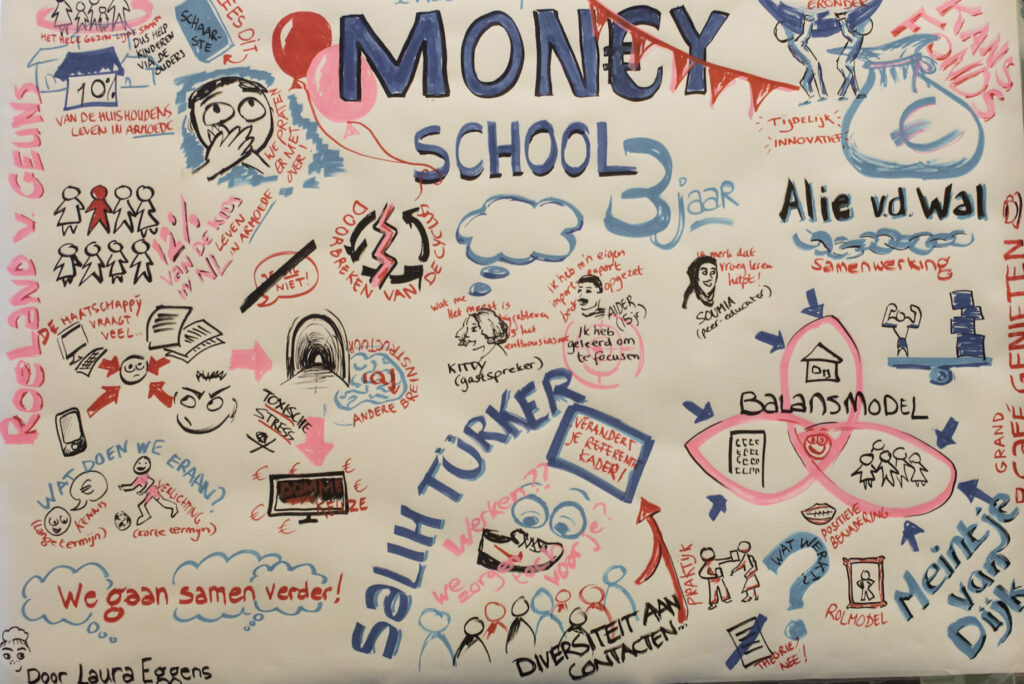 HET HELE GEZIN LIJKT SAMEN
DUS HELP
KINDEREN
VIA DE
OUDERS
SCHAAR-
STE
LEES DIT
10%
VAN DE HUISHOUDENS
LEVEN IN ARMOEDE
WE PRATEN
ER NIET
OVER!
MON€Y
SCHOOL
3 jaar
ERONDER
TIJDELIJK
INNOVATIEF
KANS
FONDS
€
ROELAND v. GEUNS
12%
VAN DE KIDS
IN NL LEVEN
IN ARMOEDE
NIET!
DOORBREKEN VAN DE CYCLUS
Alie v.d. Wal
samenwerking
DE MAATSCHAPPIJ
VRAAGT
VEEL...
TOXISCHE
STRESS
ANDERE BREINSTRUCTUUR
KEUZE
€ € € € €
wat me
het meest is
het
enthousiasme
KITTY
(gastspreker)
Ik heb m'n eigen
import export
opgezet
AIDER
(15 jr)
Ik heb
geleerd om
te focusen
Ik merk dat
vroeg leren
helpt
SOUMIA
(peer-educator)
BALANSMODEL
POSITIEVE
BENADERING
GRAND
CAFÉ GENIETEN
WAT DOEN WE ERAAN?
€
KENNIS
(lange termijn)
VERLICHTING
(korte termijn)
We gaan samen verder!
SALIH TÜRKER
VERANDERT
JE REFERENTIE
KADER!
werken??
we zorgen
voor je?
DIVERSITEIT AAN
CONTACTEN...
PRAKTIJK
WAT WERKT?
?
THEORIE
NEE!
ROLMODEL
Meintje
van
Dijk
Door Laura Eggens